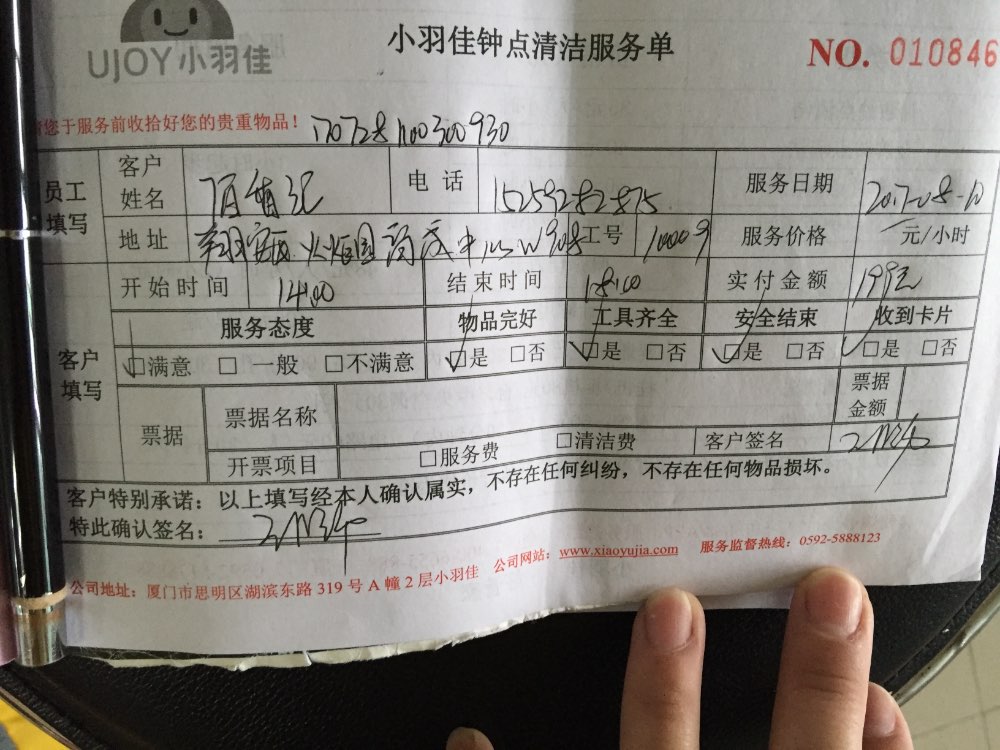 UJOY小羽佳
小羽佳钟点清洁服务单
NO. 010846
请您于服务前收拾好您的贵重物品！ 170728100300930
员工填写
客户姓名 电 话 15259282875 服务日期 2017-08-10
地址 中心W908 工号 10009 服务价格 元/小时
客户填写
开始时间 14:00 结束时间 18:00 实付金额 199元
服务态度 物品完好 工具齐全 安全结束 收到卡片
□满意 □ 一般 □不满意 □是 □否 □是 □否 □是 □否 □是 □否
票据 票据名称 票据金额
开票项目 □服务费 □清洁费 客户签名
客户特别承诺：以上填写经本人确认属实，不存在任何纠纷，不存在任何物品损坏。
特此确认签名：
公司地址：厦门市思明区湖滨东路 319 号 A 幢 2 层小羽佳 公司网站：www.xiaoyujia.com 服务监督热线：0592-5888123